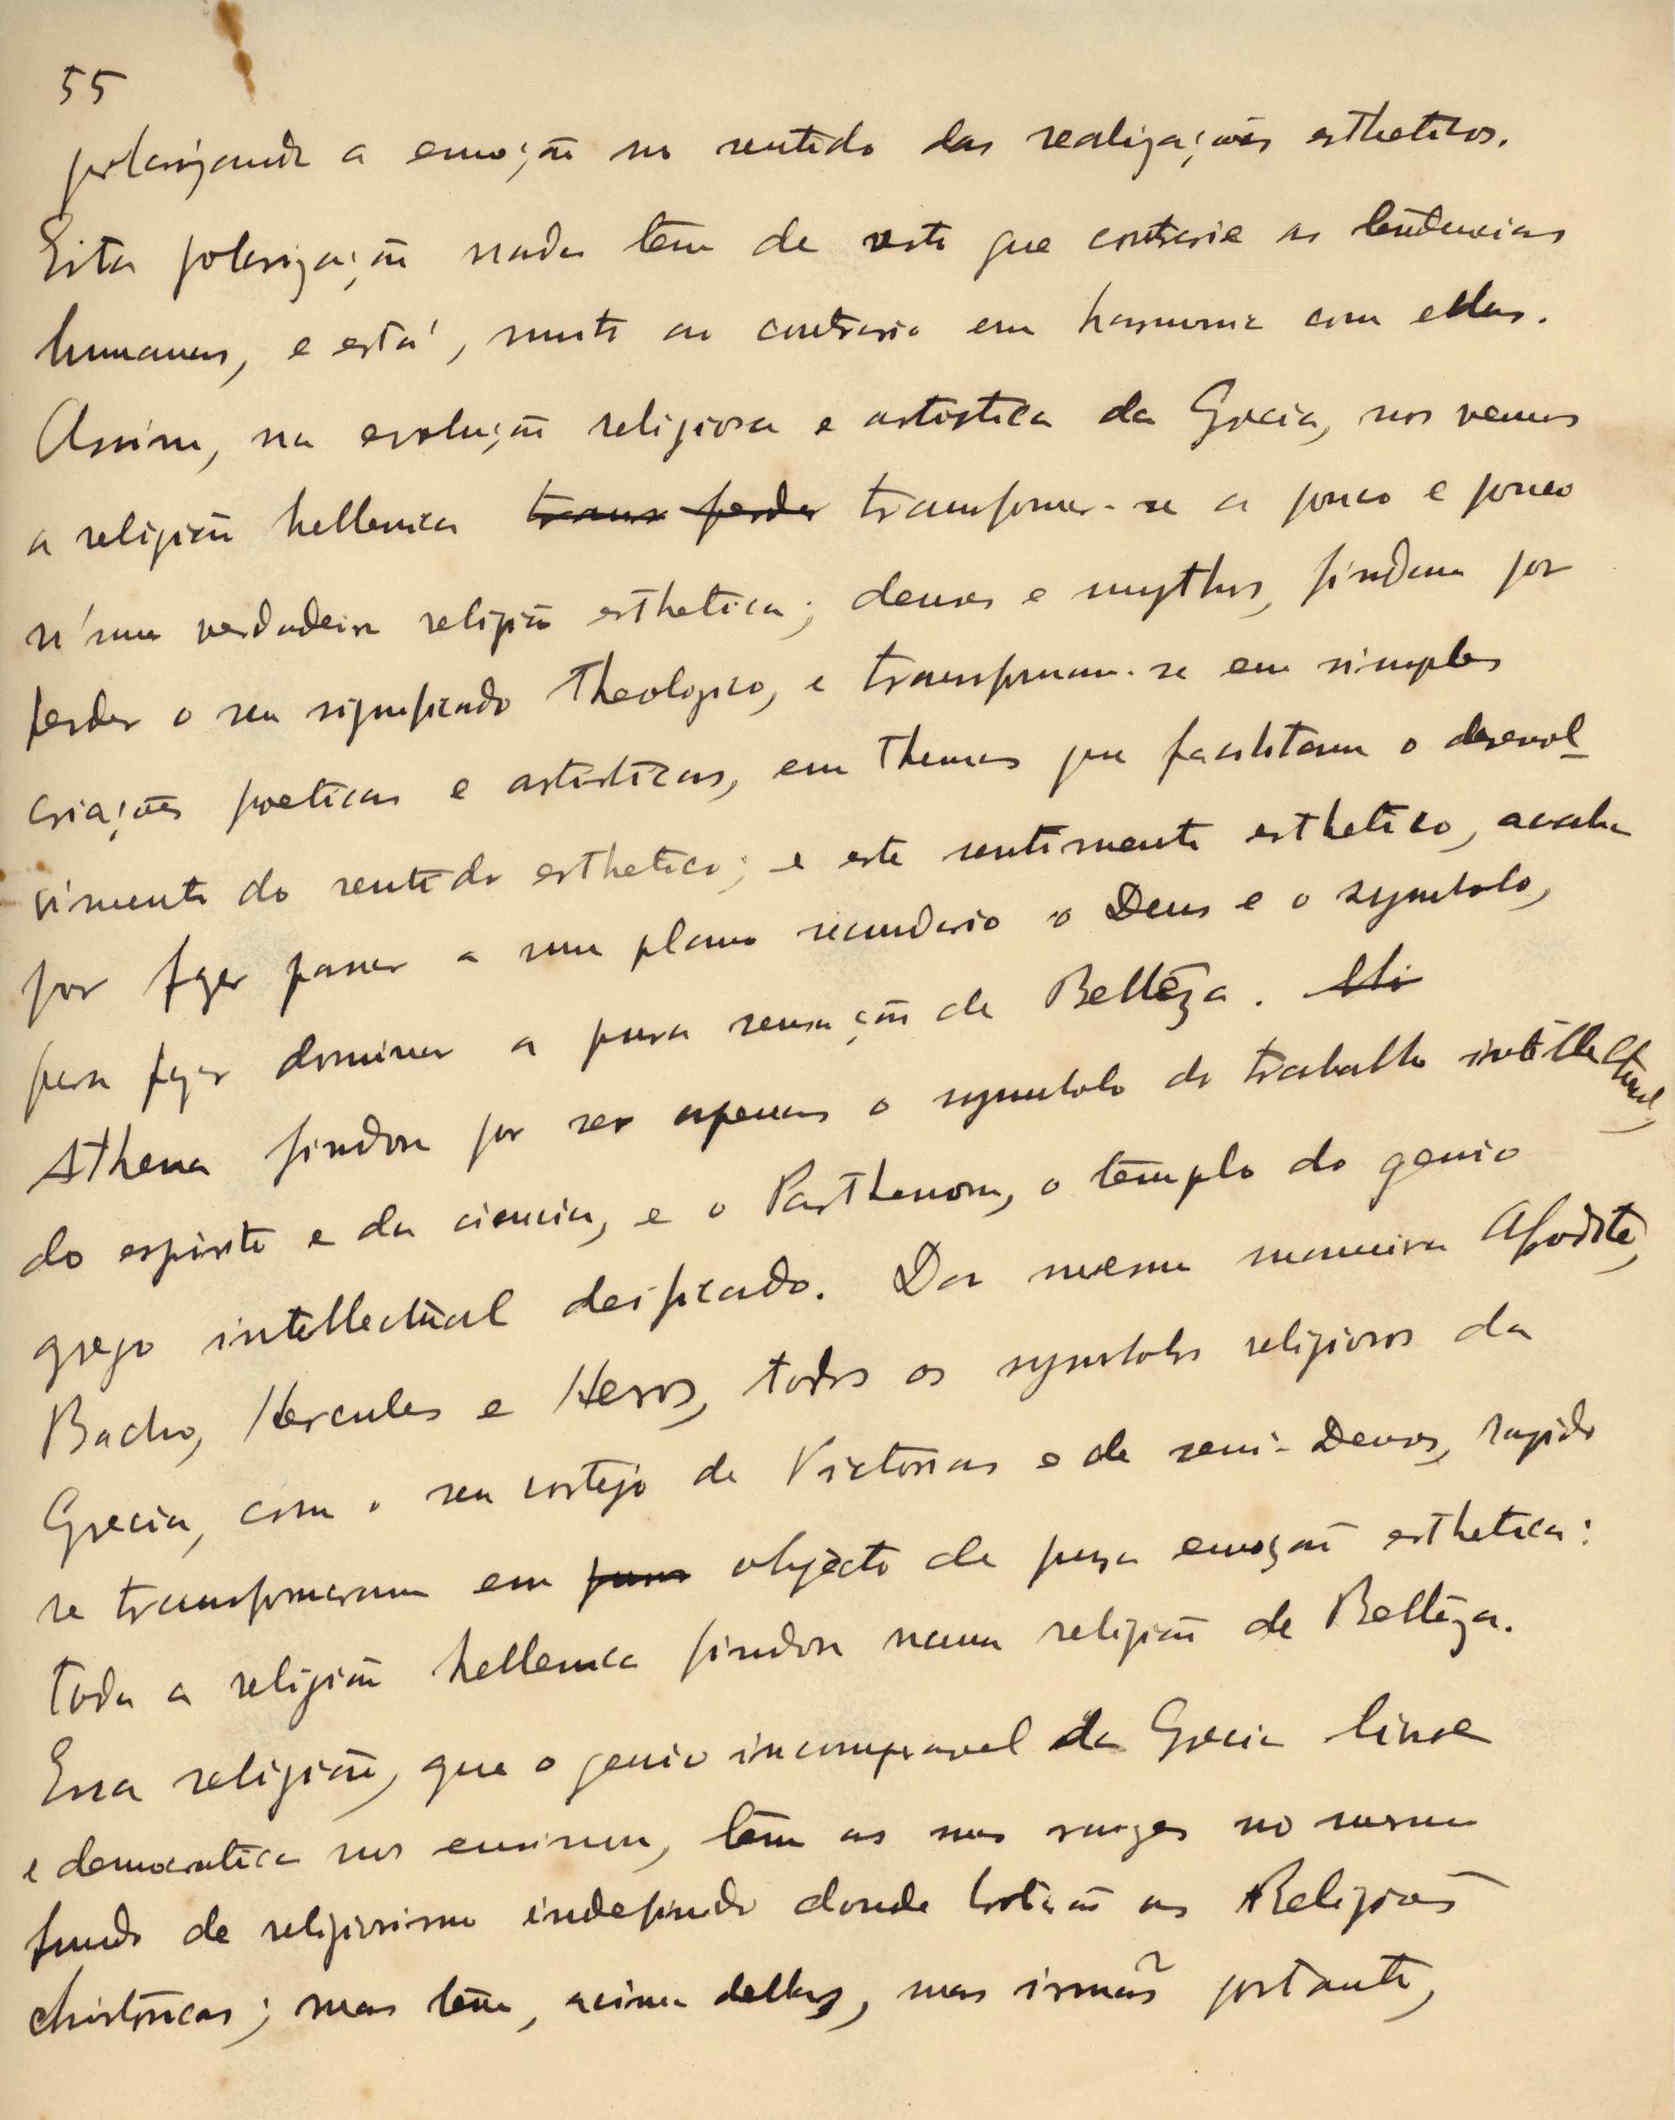 55
polarizando a emoção no sentido das realizações estheticas.
Esta polarização nada tem de resto que contrarie as tendencias
humanas, e está, muito ao contrario em harmonia com ellas.
Assim, na evolução religiosa e artistica da Grecia, nos vemos
a religião hellenica trans perder transformar-se a pouco e pouco
n'uma verdadeira religião esthetica; deuses e mythos, findam por
perder o seu significado theologico, e transformam-se em simples
criações poeticas e artisticas, em themas que facilitam o desenvol-
vimento do sentido esthetico; e este sentimento esthetico, acaba
por fazer passar a um plano secundario o Deus e o symbolo,
para fazer dominar a pura sensação de Bellêza.
Athena findou por ser apenas o symbolo do trabalho intellectual,
do espirito e da ciencia, e o Parthenon, o templo do genio
grego intellectual deificado. Da mesma maneira Afrodite,
Bacho, Hercules e Heros, todos os symbolos religiosos da
Grecia, com o seu cortejo de Victorias e de semi-Deuses, rapido
se transformaram em puro objecto de pura emoção esthetica:
toda a religião hellenica findou numa religião de Bellêza.
Essa religião, que o genio incomparavel da Grecia livre
e democratica nos ensinou, tem as suas raizes no mesmo
fundo de religiosismo indefinido donde brotarão as Religiões
christóricas; mas tem, acima dellas, mas irmãs portanto,